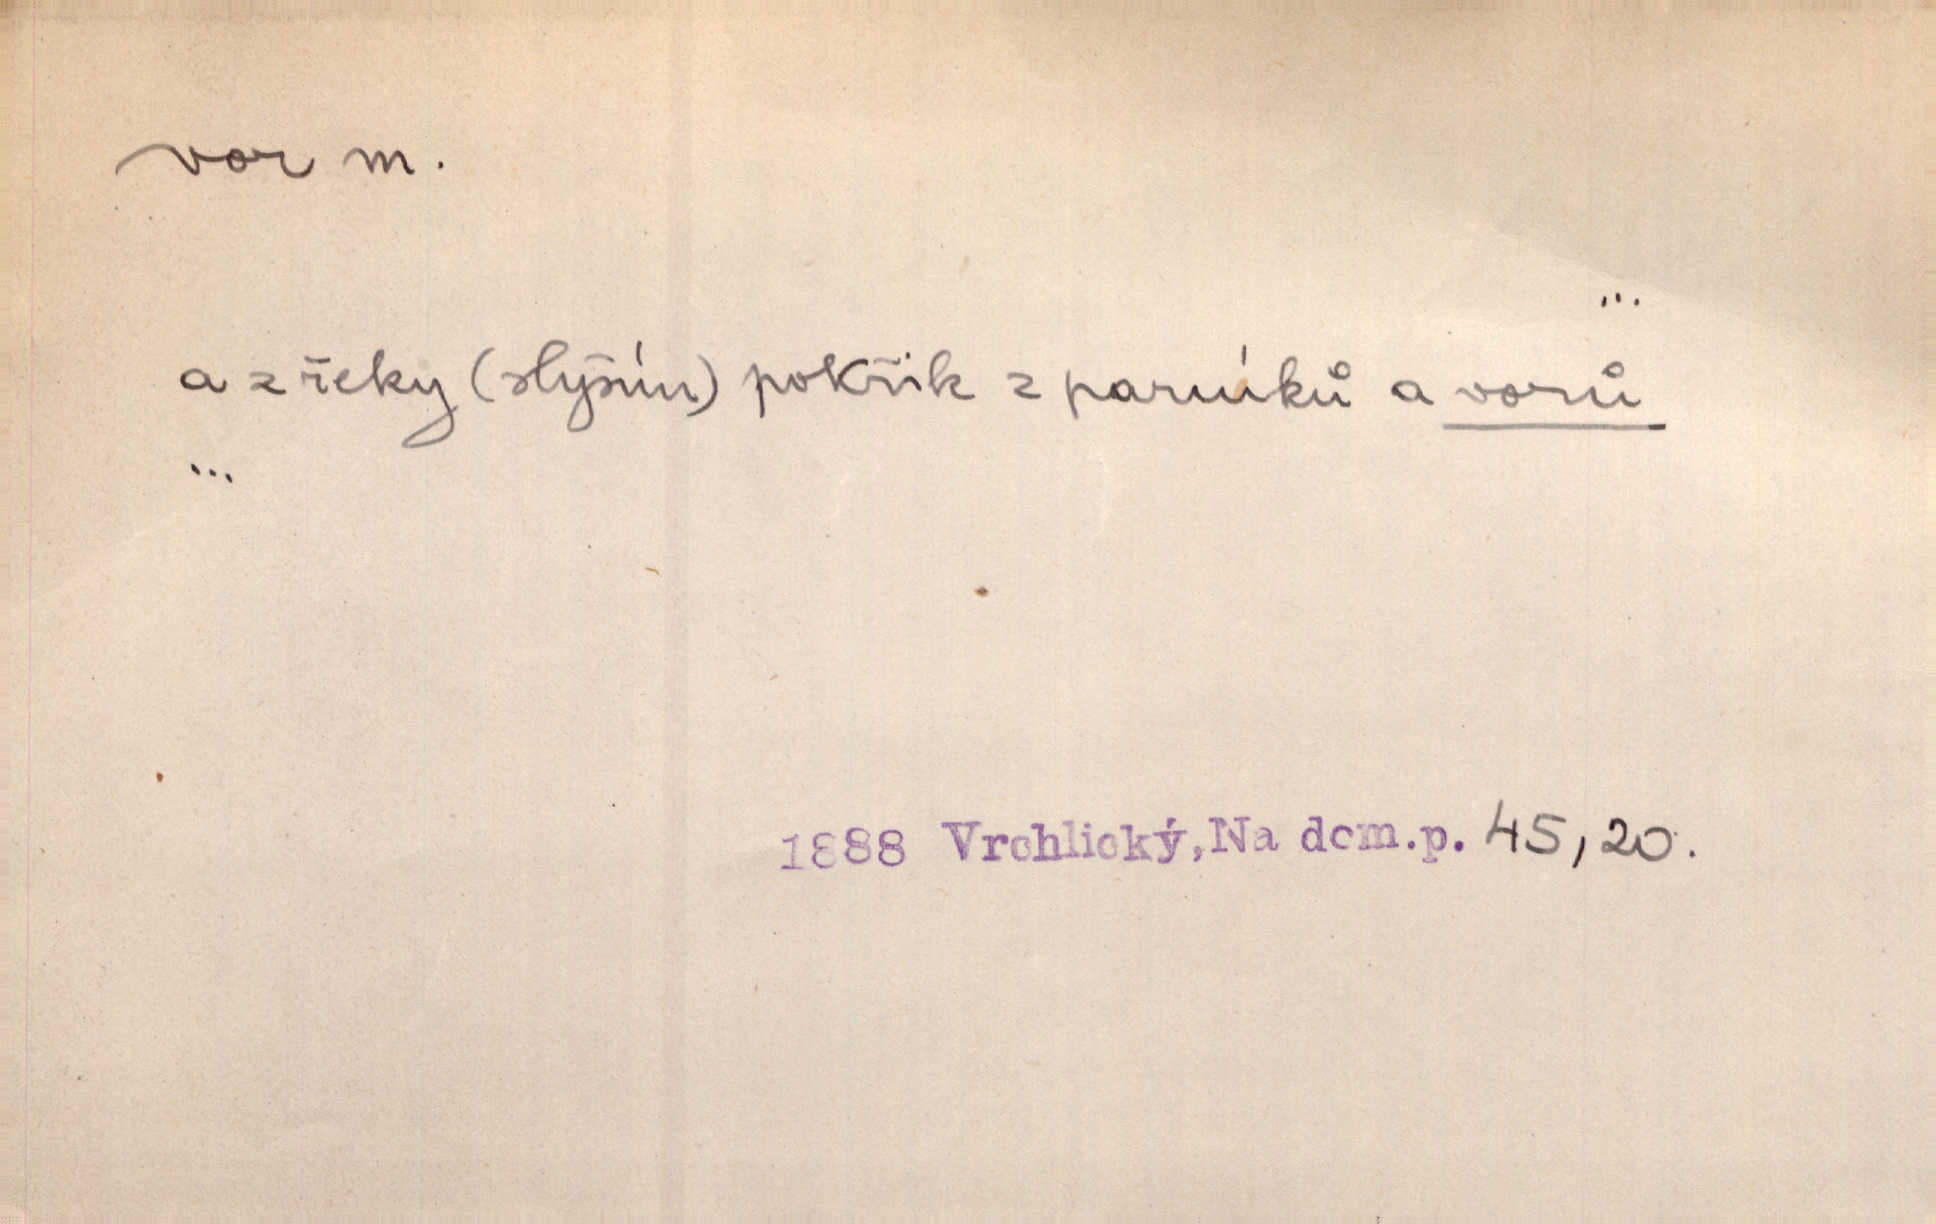 vor m.
...
a z řeky (slyším) pokřik z parníků a vorů
...
1888 Vrchlický, Na dom. p. 45, 20.